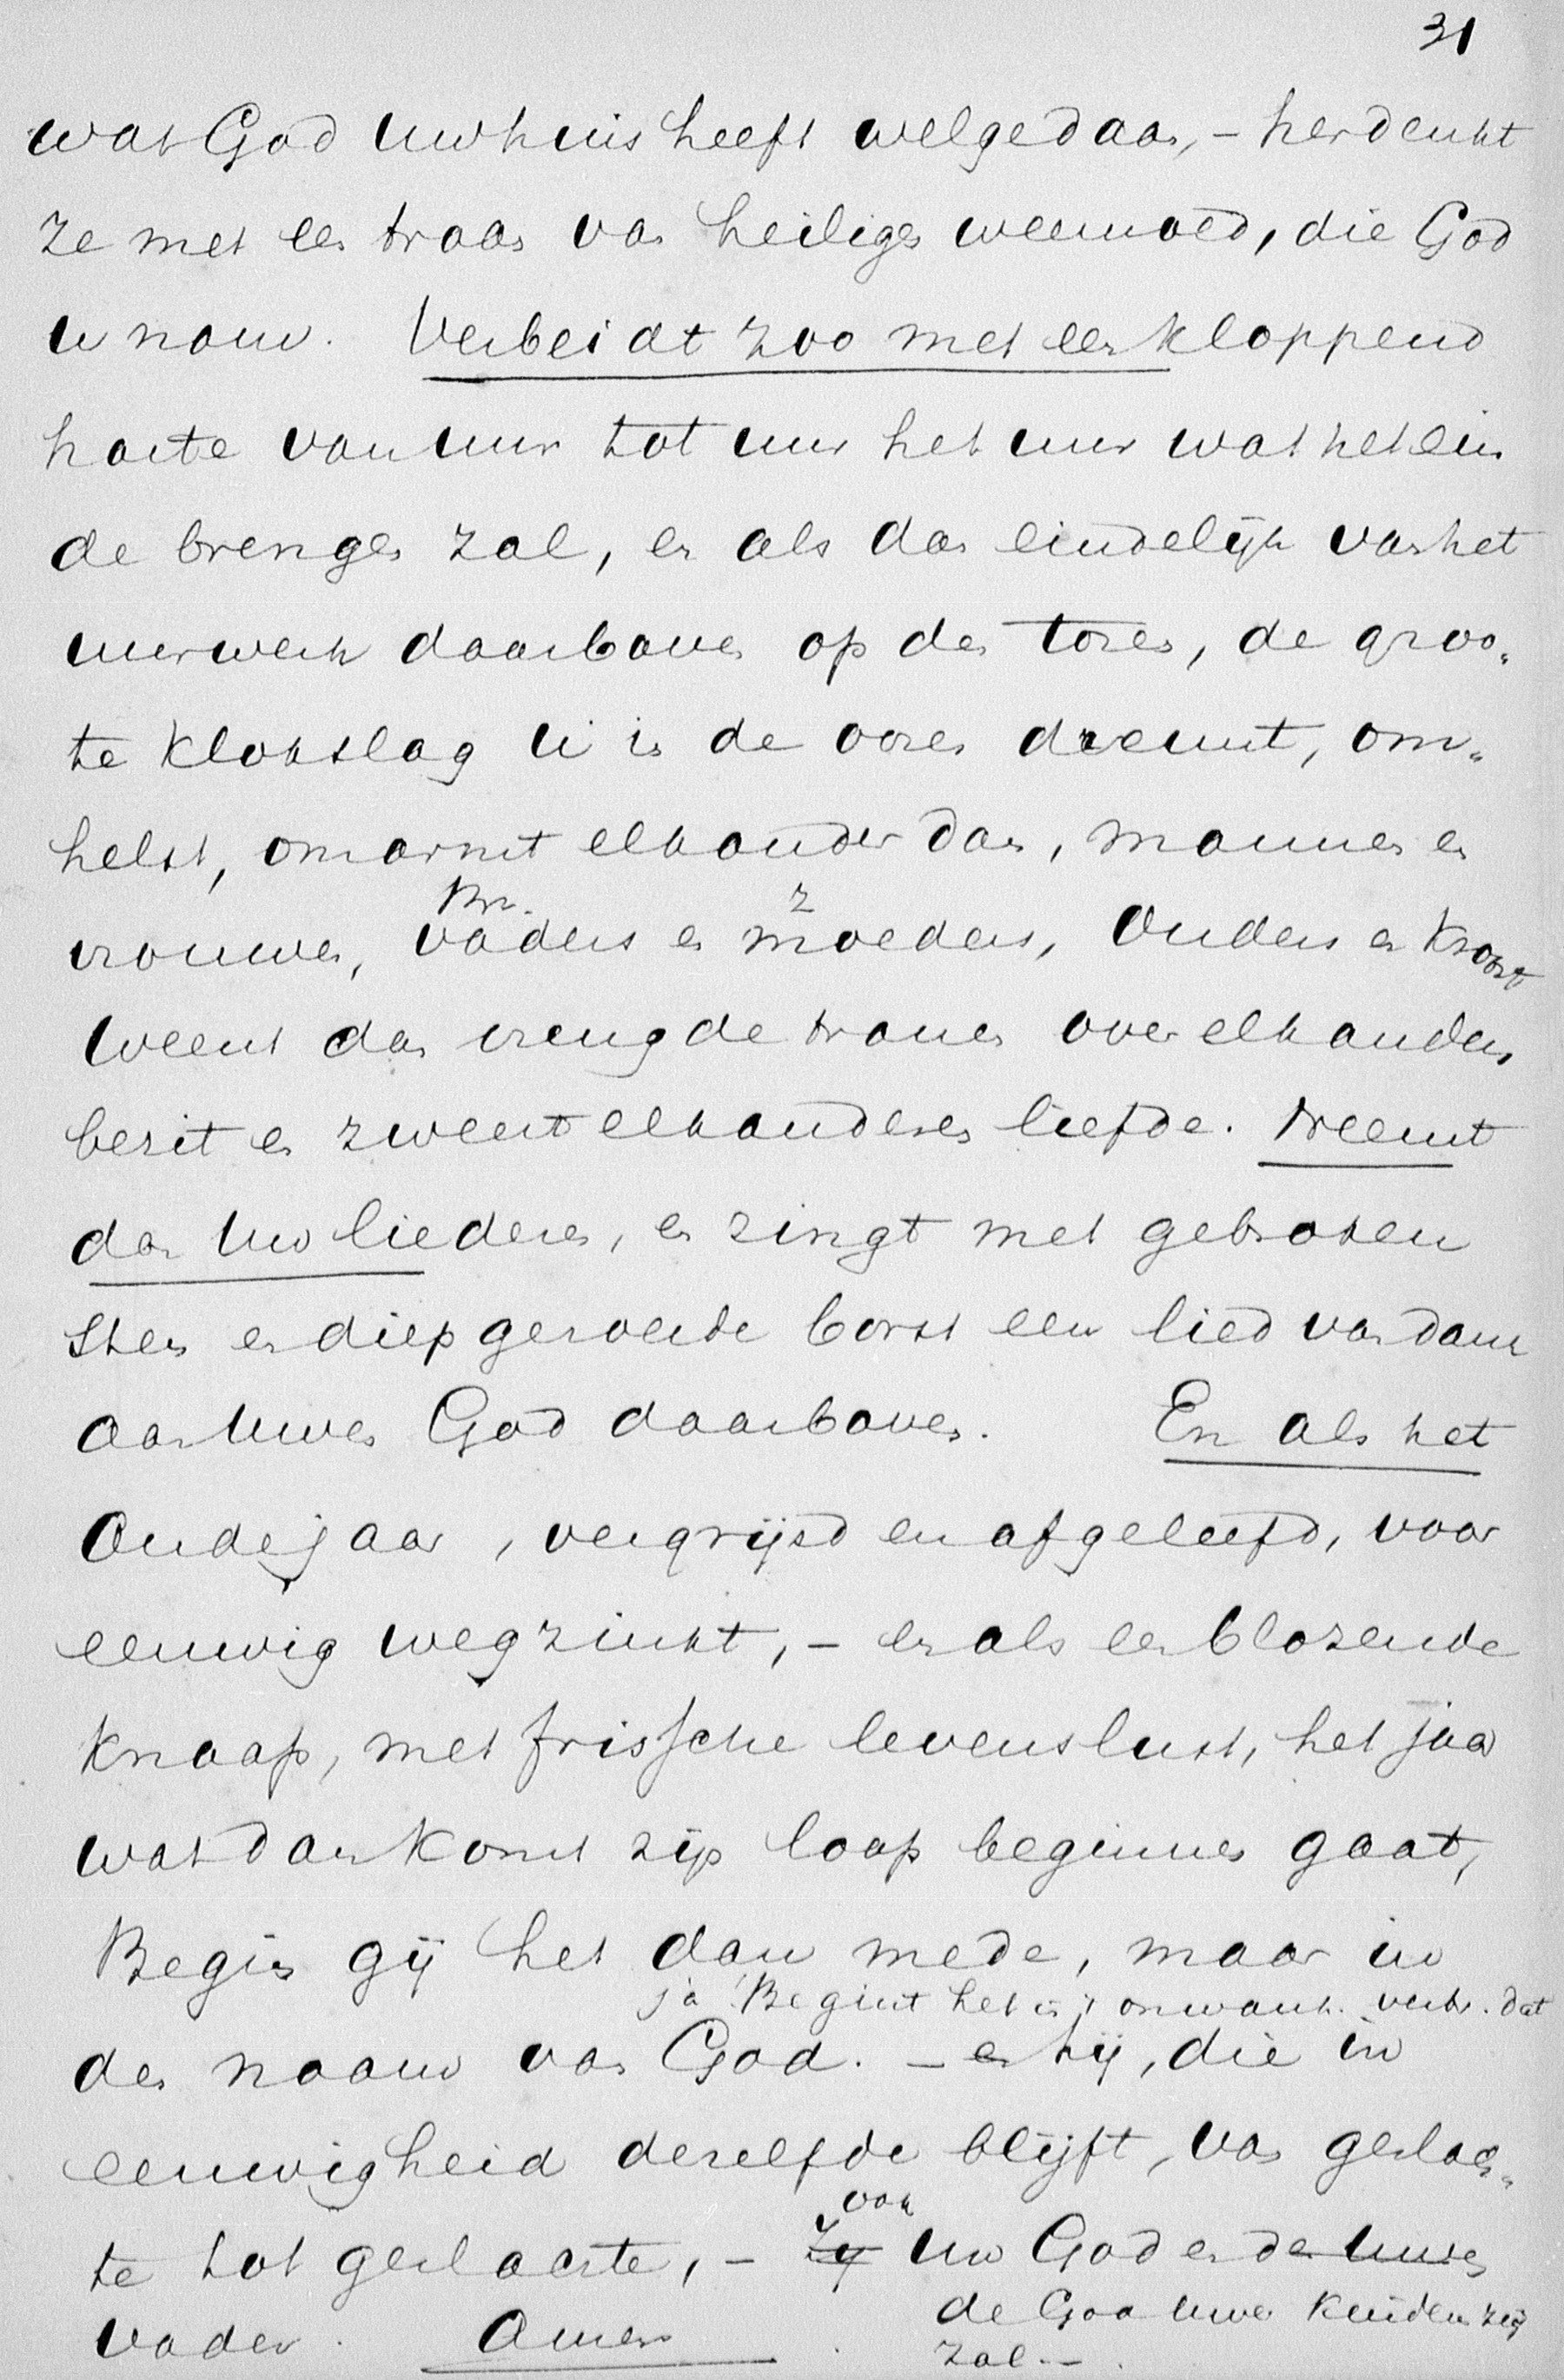 31
wat God uw huis heeft welgedaan, – herdenkt
ze met een traan van heiligen weemoed, die God
u nam. Verbeidt zoo met een kloppend
harte van uur tot uur het uur wat het ein
de brengen zal, en als dan eindelijk van het
uurwerk daarboven op den toren, de groo„
te klokslag U in de ooren dreunt, om„
helst, omarmt elkander dan, mannen en
Br. z
vrouwen, vaders en moeders, Ouders en Kroost
Weent dan vreugde tranen over elkanders
bezit en zweert elkanderen liefde. Neemt
dan Uw liederen, en zingt met gebroken
stem en diep geroerde borst een lied van dank
aan Uwen God daarboven. En als het
Oude jaar, vergrijsd en afgeleefd, voor
eeuwig wegzinkt, – en als een blozende
Knaap, met frissche levenslust, het jaar
wat dan komt zijn loop beginnen gaat,
Begin gij het dan mede, maar in
ja! Begint het in 't onwank. vertr. dat
den naam van God. – en hij, die in
eeuwigheid dezelfde blijft, van geslach„
ook
te tot geslachte, – Zij Uw God en der Uwen
de God uwer kinderen zijn
Vader. Amen
zal. –